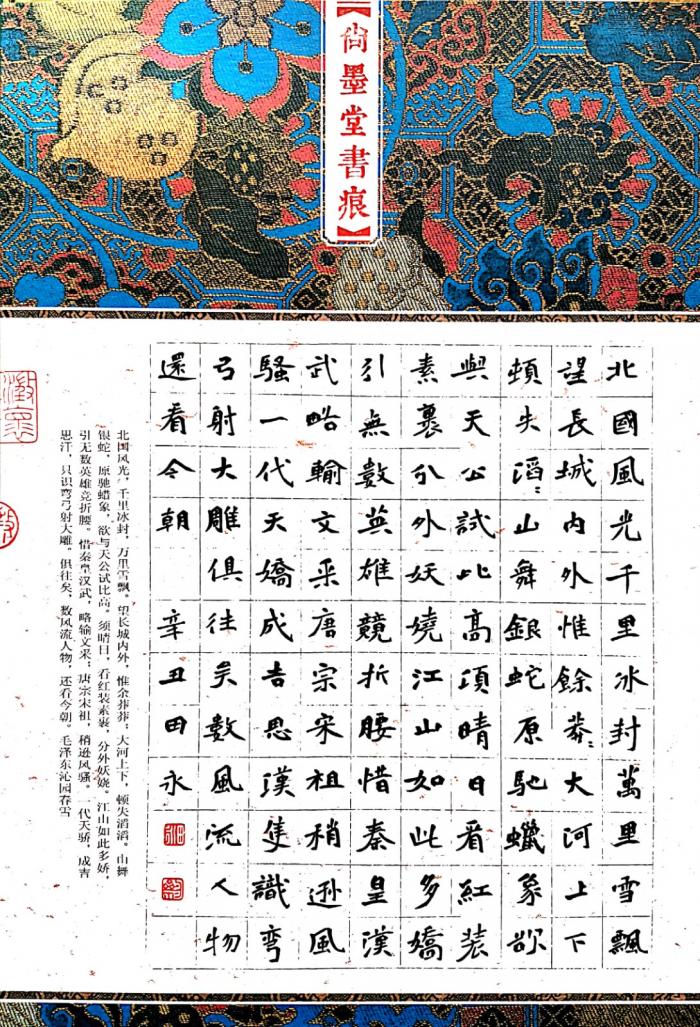 【尚墨堂書痕】
北國風光千里冰封萬里雪飄
望長城內外惟餘莽〻大河上下
頓失滔〻山舞銀蛇原馳蠟象欲
與天公試比高須晴日看紅裝
素裹分外妖嬈江山如此多嬌
引無數英雄競折腰惜秦皇漢
武略輸文采唐宗宋祖稍遜風
騷一代天嬌成吉思漢隻識彎
弓射大雕俱往矣數風流人物
還看今朝 辛丑田永
北国风光，千里冰封，万里雪飘。望长城内外，惟余莽莽；大河上下，顿失滔滔。山舞
银蛇，原驰蜡象，欲与天公试比高。须晴日，看红装素裹，分外妖娆。江山如此多娇，
引无数英雄竞折腰。惜秦皇汉武，略输文采；唐宗宋祖，稍逊风骚。一代天骄，成吉
思汗，只识弯弓射大雕。俱往矣，数风流人物，还看今朝。毛泽东沁园春雪